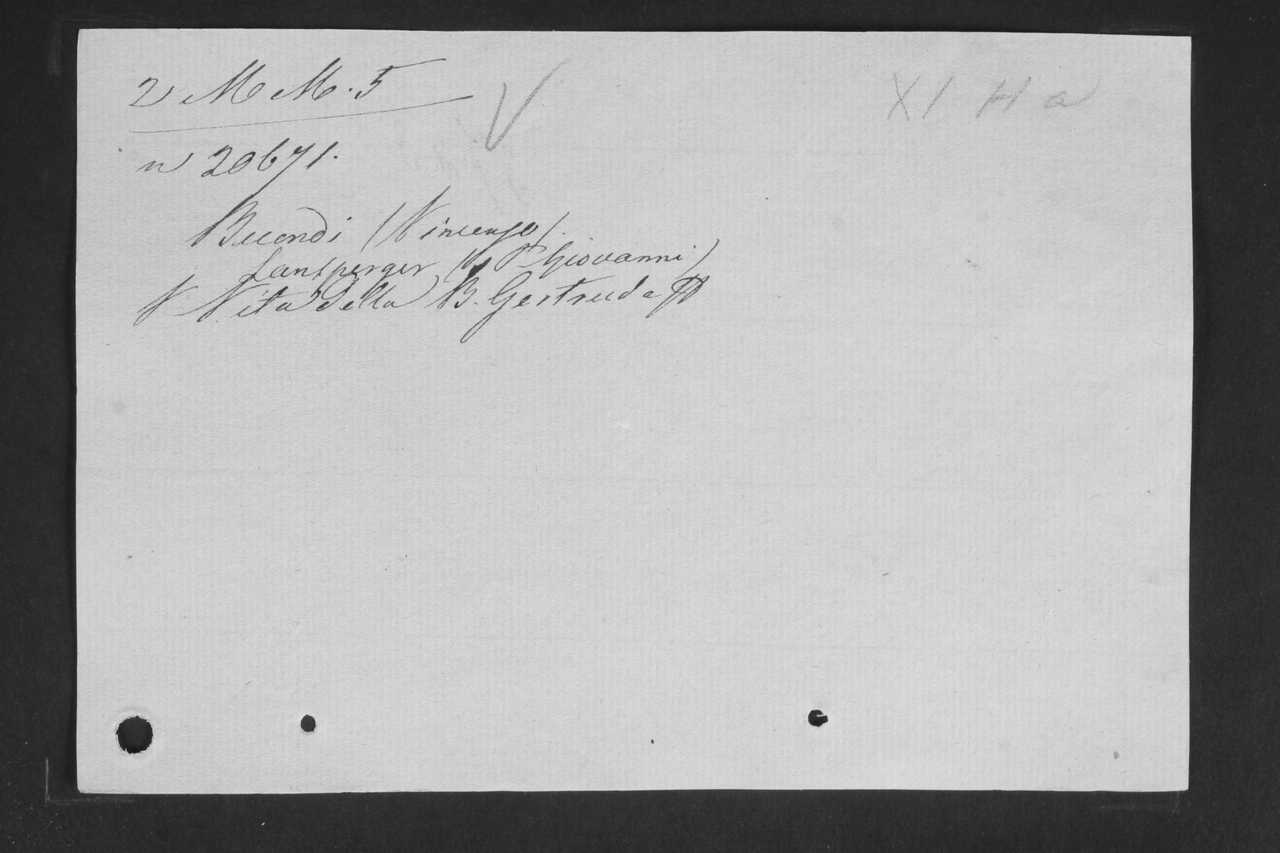 2 M M. 5
XI H a
n 20671.
Bucondi (Vincenzo).
Lansperger (P. Giovanni)
V Vita della B. Gertruda